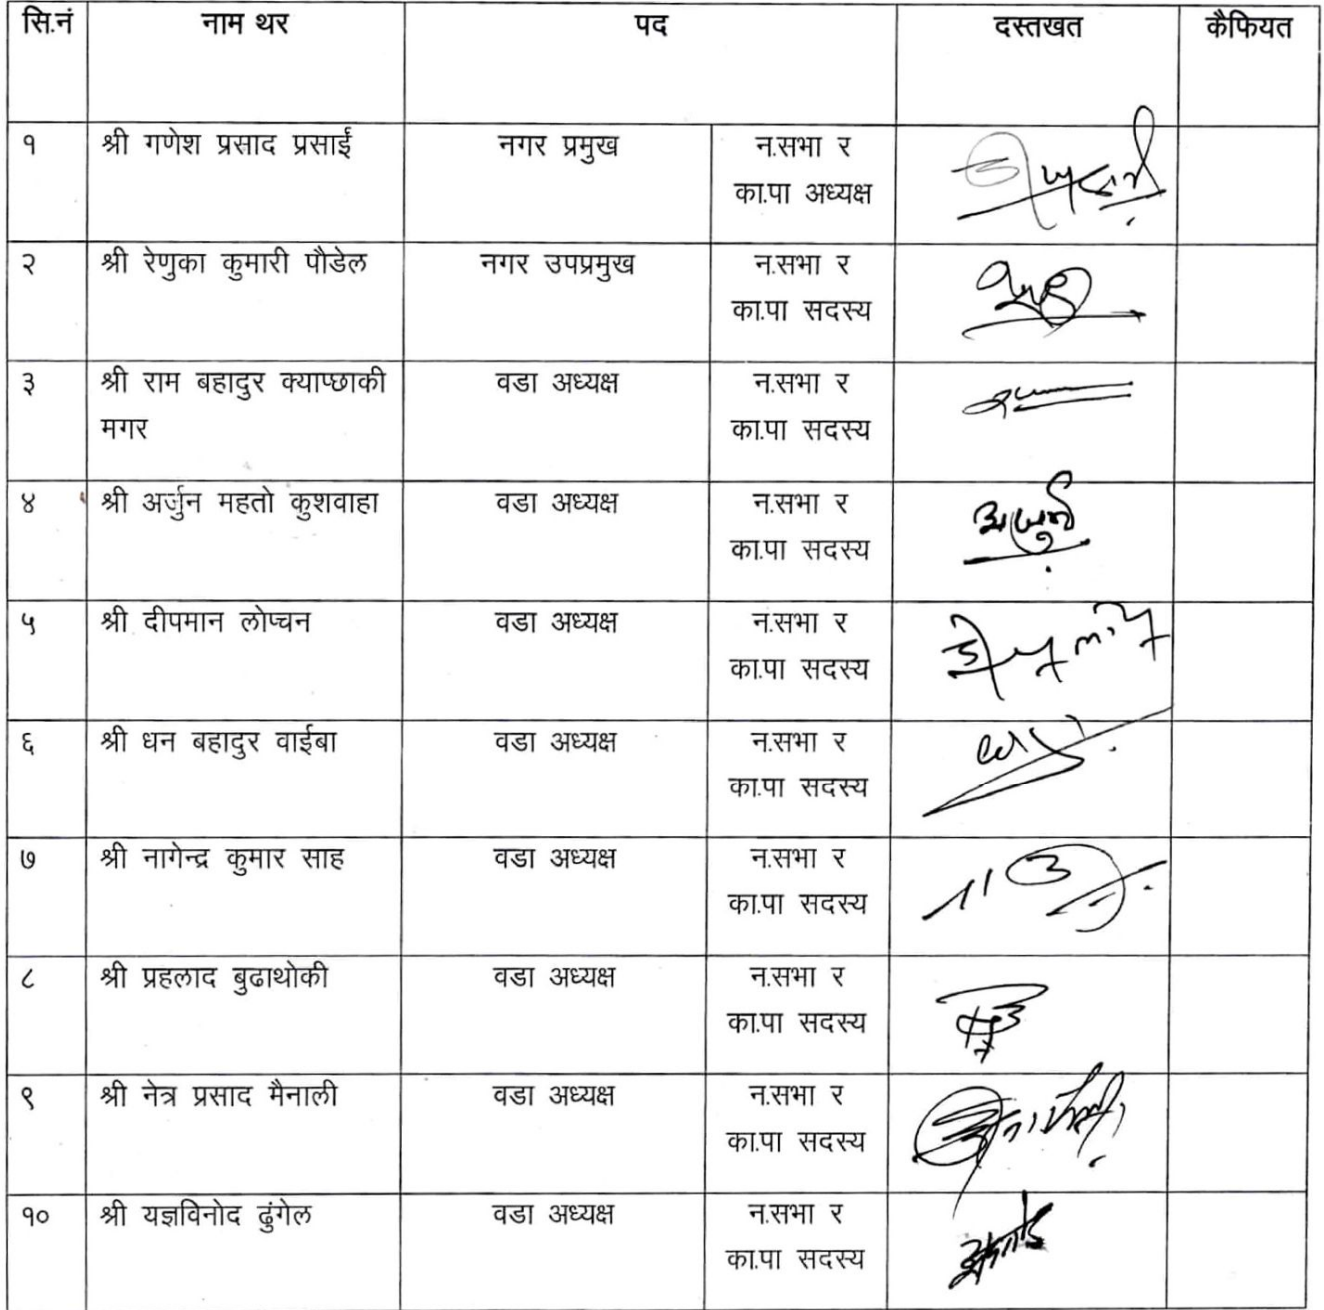 सि.नं नाम थर पद दस्तखत कैफियत
१ श्री गणेश प्रसाद प्रसाईं नगर प्रमुख न.सभा र
का.पा अध्यक्ष
२ श्री रेणुका कुमारी पौडेल नगर उपप्रमुख न.सभा र
का.पा सदस्य
३ श्री राम बहादुर क्याप्छाकी वडा अध्यक्ष न.सभा र
मगर का.पा सदस्य
४ श्री अर्जुन महतो कुशवाहा वडा अध्यक्ष न.सभा र
का.पा सदस्य
५ श्री दीपमान लोप्चन वडा अध्यक्ष न.सभा र
का.पा सदस्य
६ श्री धन बहादुर वाईबा वडा अध्यक्ष न.सभा र
का.पा सदस्य
७ श्री नागेन्द्र कुमार साह वडा अध्यक्ष न.सभा र
का.पा सदस्य
८ श्री प्रहलाद बुढाथोकी वडा अध्यक्ष न.सभा र
का.पा सदस्य
९ श्री नेत्र प्रसाद मैनाली वडा अध्यक्ष न.सभा र
का.पा सदस्य
१० श्री यज्ञविनोद ढुंगेल वडा अध्यक्ष न.सभा र
का.पा सदस्य